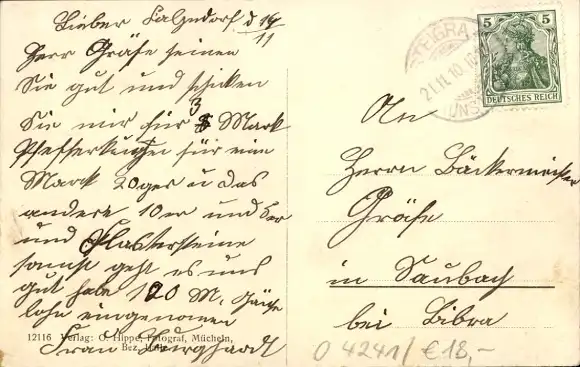 Lieber Kalzendorf d 16/11
Herr Gräfe seinen
Sie gut und schicken
Sie mir für 3 Mark
Pfefferkuchen für eine
Mark 20ger u das
andere 10er und
und Pflastersteine
sonst geht es uns
gut habe 120 M,
eingenommen
Frau Burghardt
12116 Verlag: O. Hippe, Fotograf, Mücheln,
Bez. Halle
STEIGRA
21.11.10
5 5
DEUTSCHES REICH
An
Herrn Bäckermeister
Gräfe
in Saubach
bei Bibra
04241/€18,-